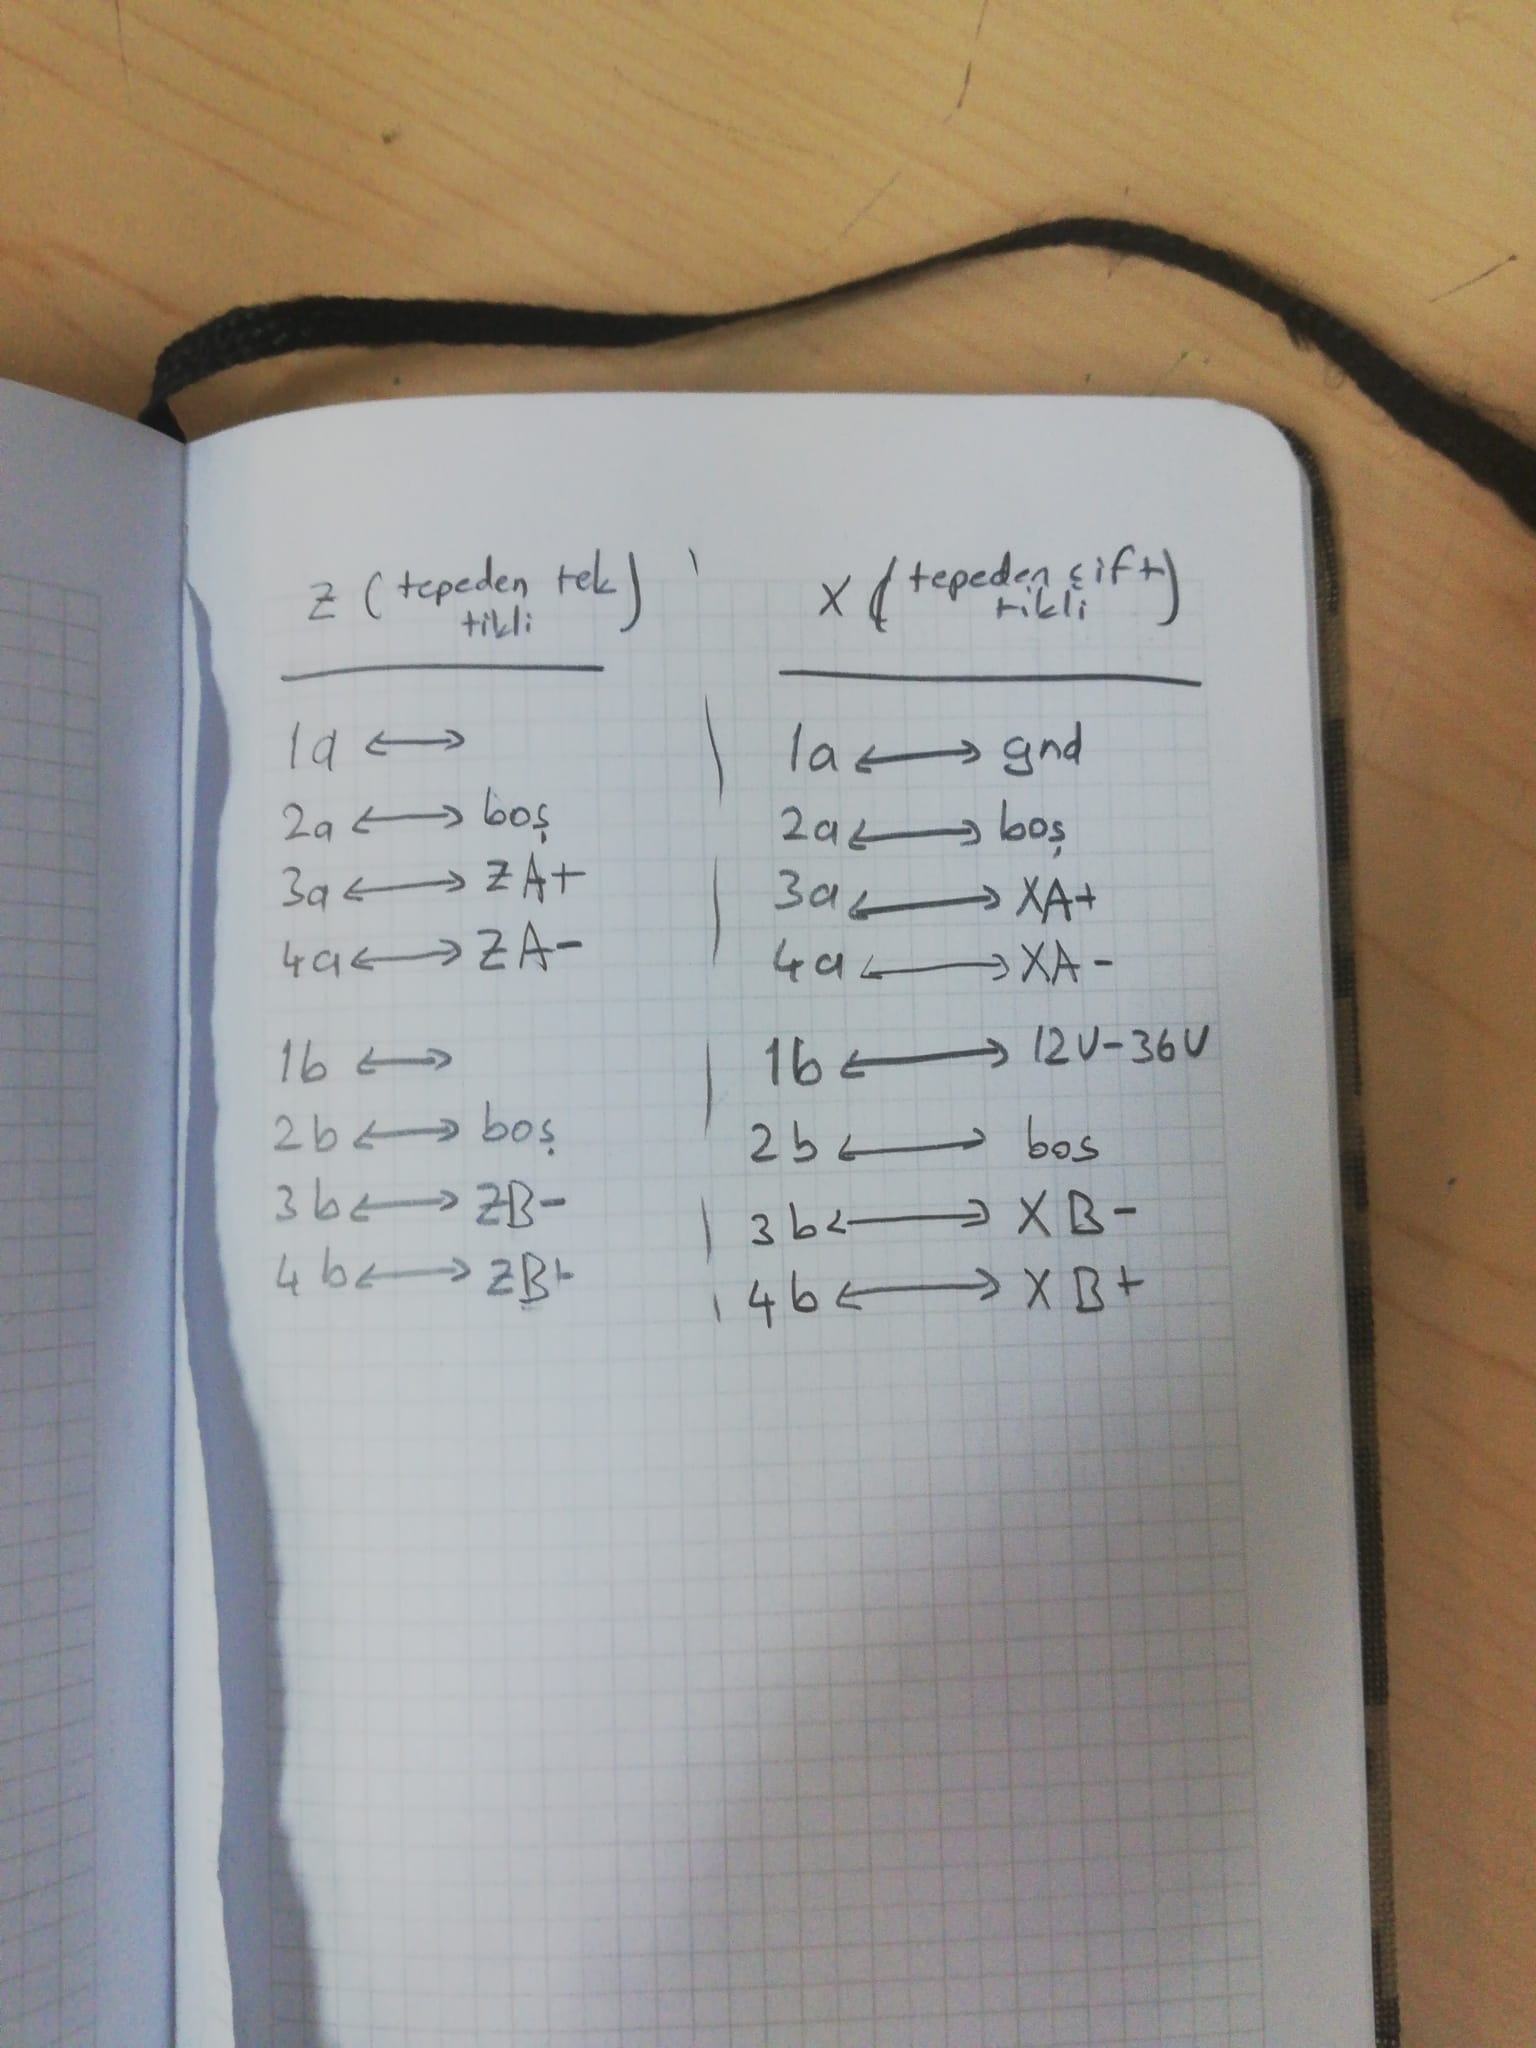 Z (tepeden tek tikli)
1a ⟷
2a ⟷ boş
3a ⟷ ZA+
4a ⟷ ZA-
1b ⟷
2b ⟷ boş
3b ⟷ ZB-
4b ⟷ ZB+
X (tepeden çift tikli)
1a ⟷ gnd
2a ⟷ boş
3a ⟷ XA+
4a ⟷ XA-
1b ⟷ 12V-36V
2b ⟷ bos
3b ⟷ XB-
4b ⟷ XB+